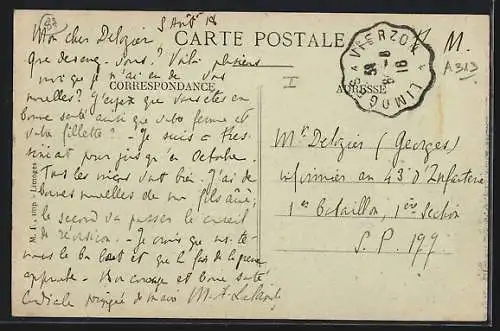 5 Août 18
Mon cher Delozier
CARTE POSTALE
F. M.
Que devenez-vous? Voilà plusieurs
mois que je n'ai eu de vos
CORRESPONDANCE
ADRESSE
VIERZON
LIMOGES
18
A313
I
nouvelles? J'espère que vous êtes en
bonne santé ainsi que votre femme et
votre fillette? - Je suis
jusqu'en Octobre.
Tous les miens vont bien. J'ai de
bonnes nouvelles de mon fils aîné,
le second va passer le conseil
de révision. - Je crois que nous te-
nons le bon bout et que la fin de la guerre
approche. - Bon courage et bonne santé
Cordiale poignée de main
Mr Delozier (Georges)
infirmier au 43e d'Infanterie
1er bataillon, 1ère section
S. P. 199.
M. T., imp. - Limoges